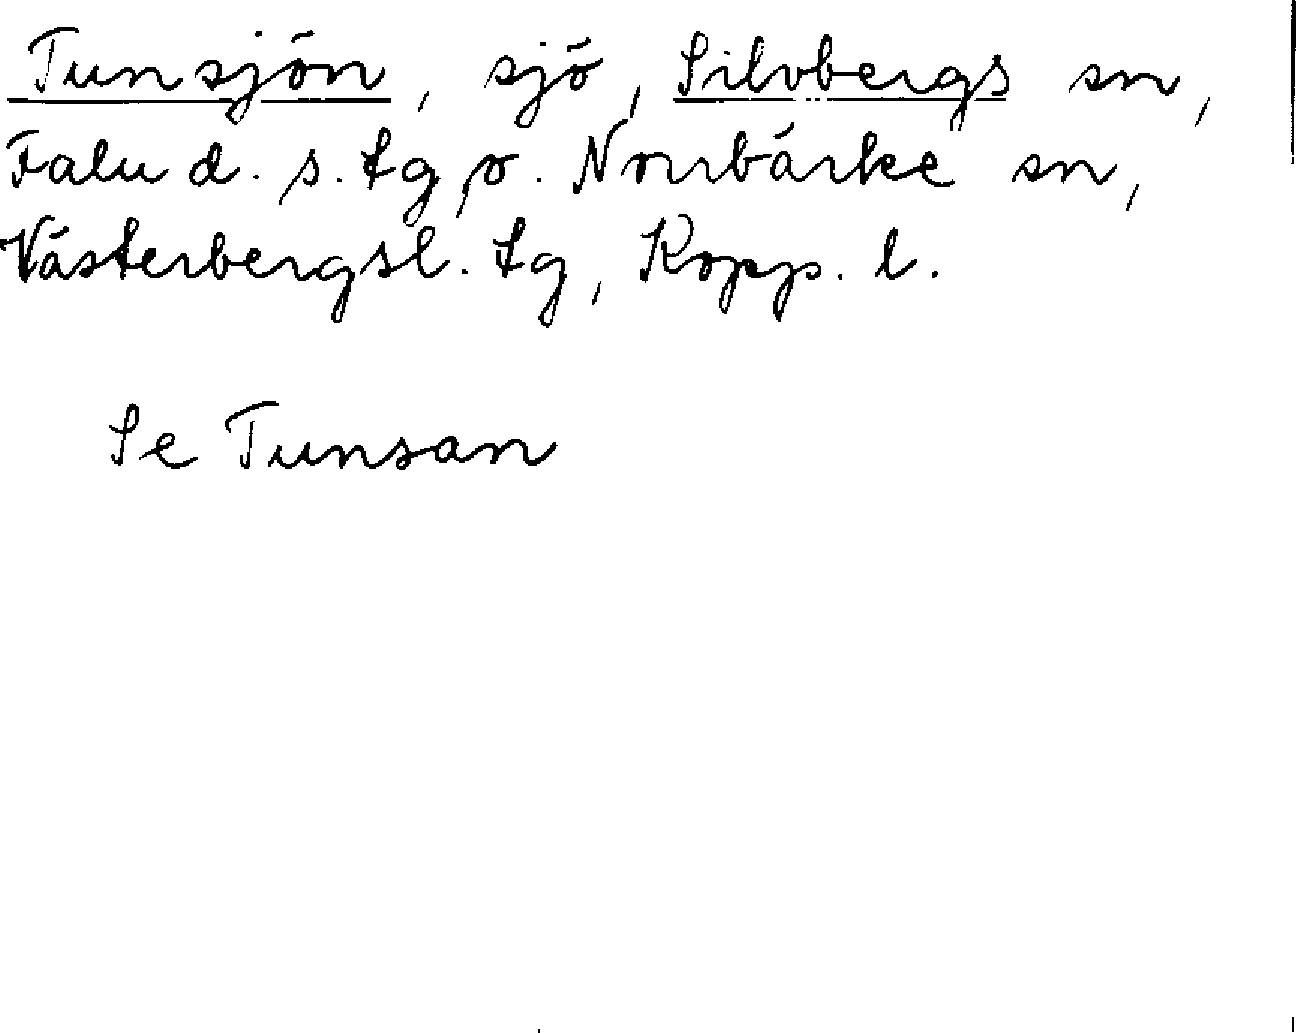 Tunsjön, sjö, Silvbergs sn,
Falu d. s. tg, o. Norrbärke sn,
Västerbergsl. tg, Kopp. l.
Se Tunsan